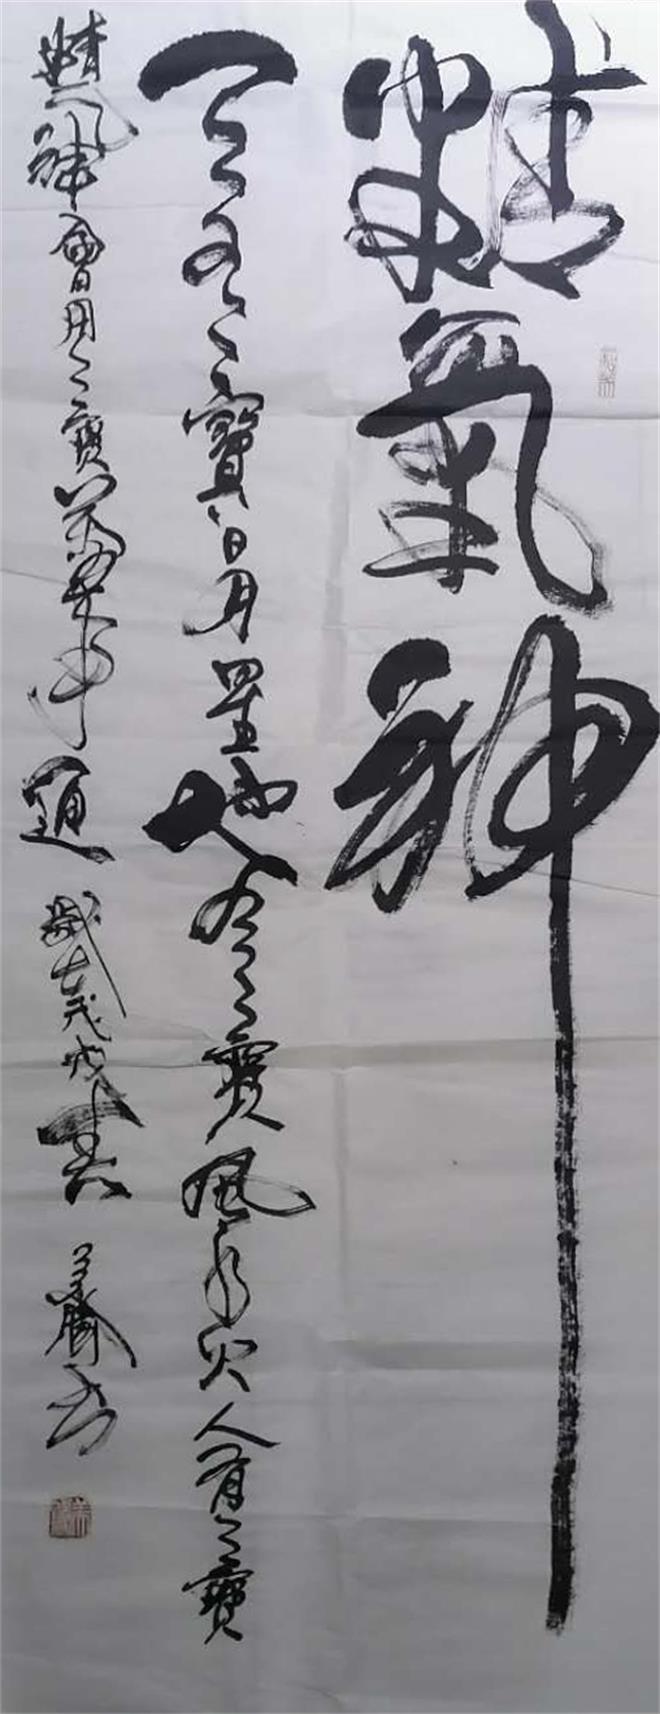 精氣神
天有三寶日月星地有三寶風水火人有三寶
精氣神會用三寶萬事通歲在戊戌春義勝書